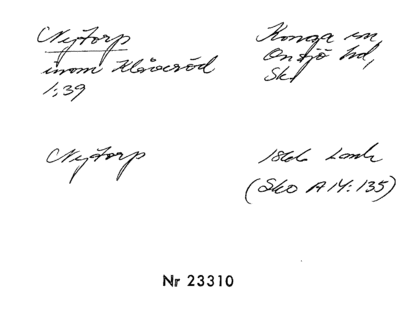 Nytorp
inom Klåveröd
1:39
Konga sn,
Onsjö hd,
Sk
Nytorp
1866 Lantm
(Sko A 14:135)
Nr 23310